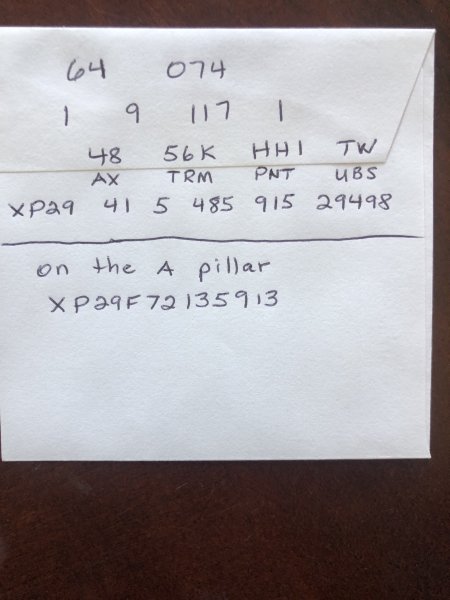 64 074
1 9 117 1
48 56K HH1 TW
AX TRM PNT UBS
XP29 41 5 485 915 29498
on the A pillar
XP29F72135913